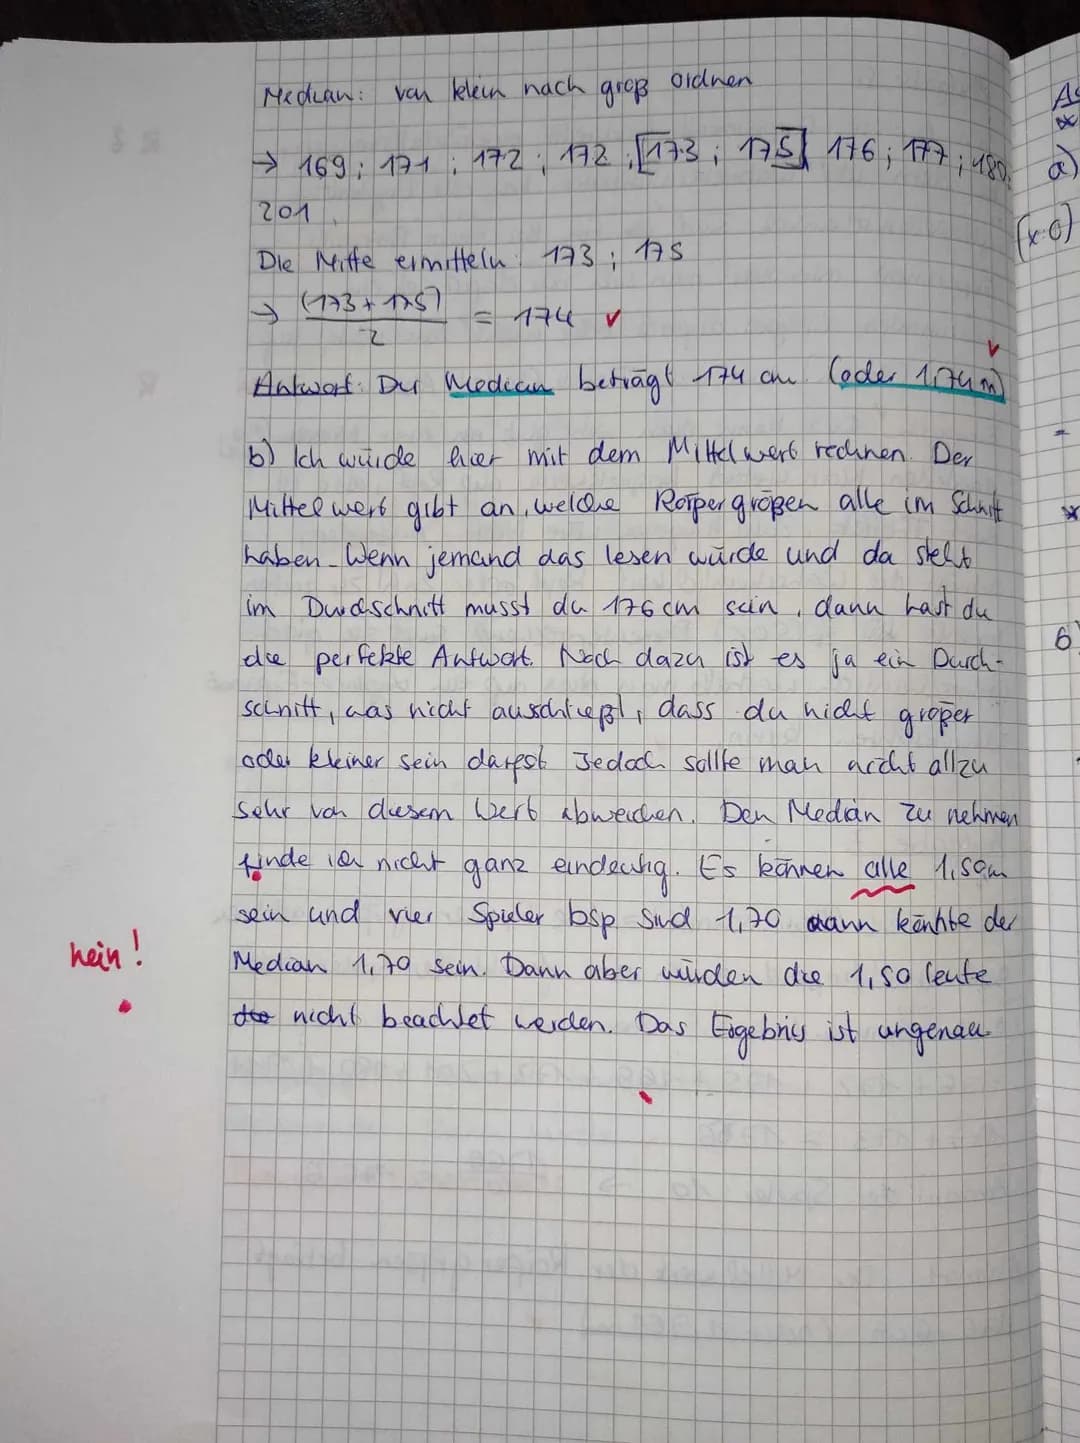 Median: von klein nach groß ordnen
→ 169; 171; 172; 172; [173; 175] 176; 177; 180;
201
Die Mitte ermitteln: 173; 175
→ (173+175)
2
= 174 ✓
Antwort: Der Median beträgt 174 cm. (oder 1,74m) ✓
b) Ich würde hier mit dem Mittelwert rechnen. Der
Mittelwert gibt an, welche Körpergrößen alle im Schnitt
haben. Wenn jemand das lesen würde und da steht
im Durchschnitt musst du 176 cm sein, dann hast du
die perfekte Antwort. Noch dazu ist es ja ein Durch-
schnitt, was nicht ausschließt, dass du nicht größer
oder kleiner sein darfst. Jedoch sollte man nicht allzu
sehr von diesem Wert abweichen. Den Median zu nehmen
finde ich nicht ganz eindeutig. Es können alle 1,50m
sein und vier Spieler bsp. sind 1,70 dann könnte der
nein!
Median 1,70 sein. Dann aber würden die 1,50 leute
nicht beachtet werden. Das Ergebnis ist ungenau.
a)
(x·0)
=
6)